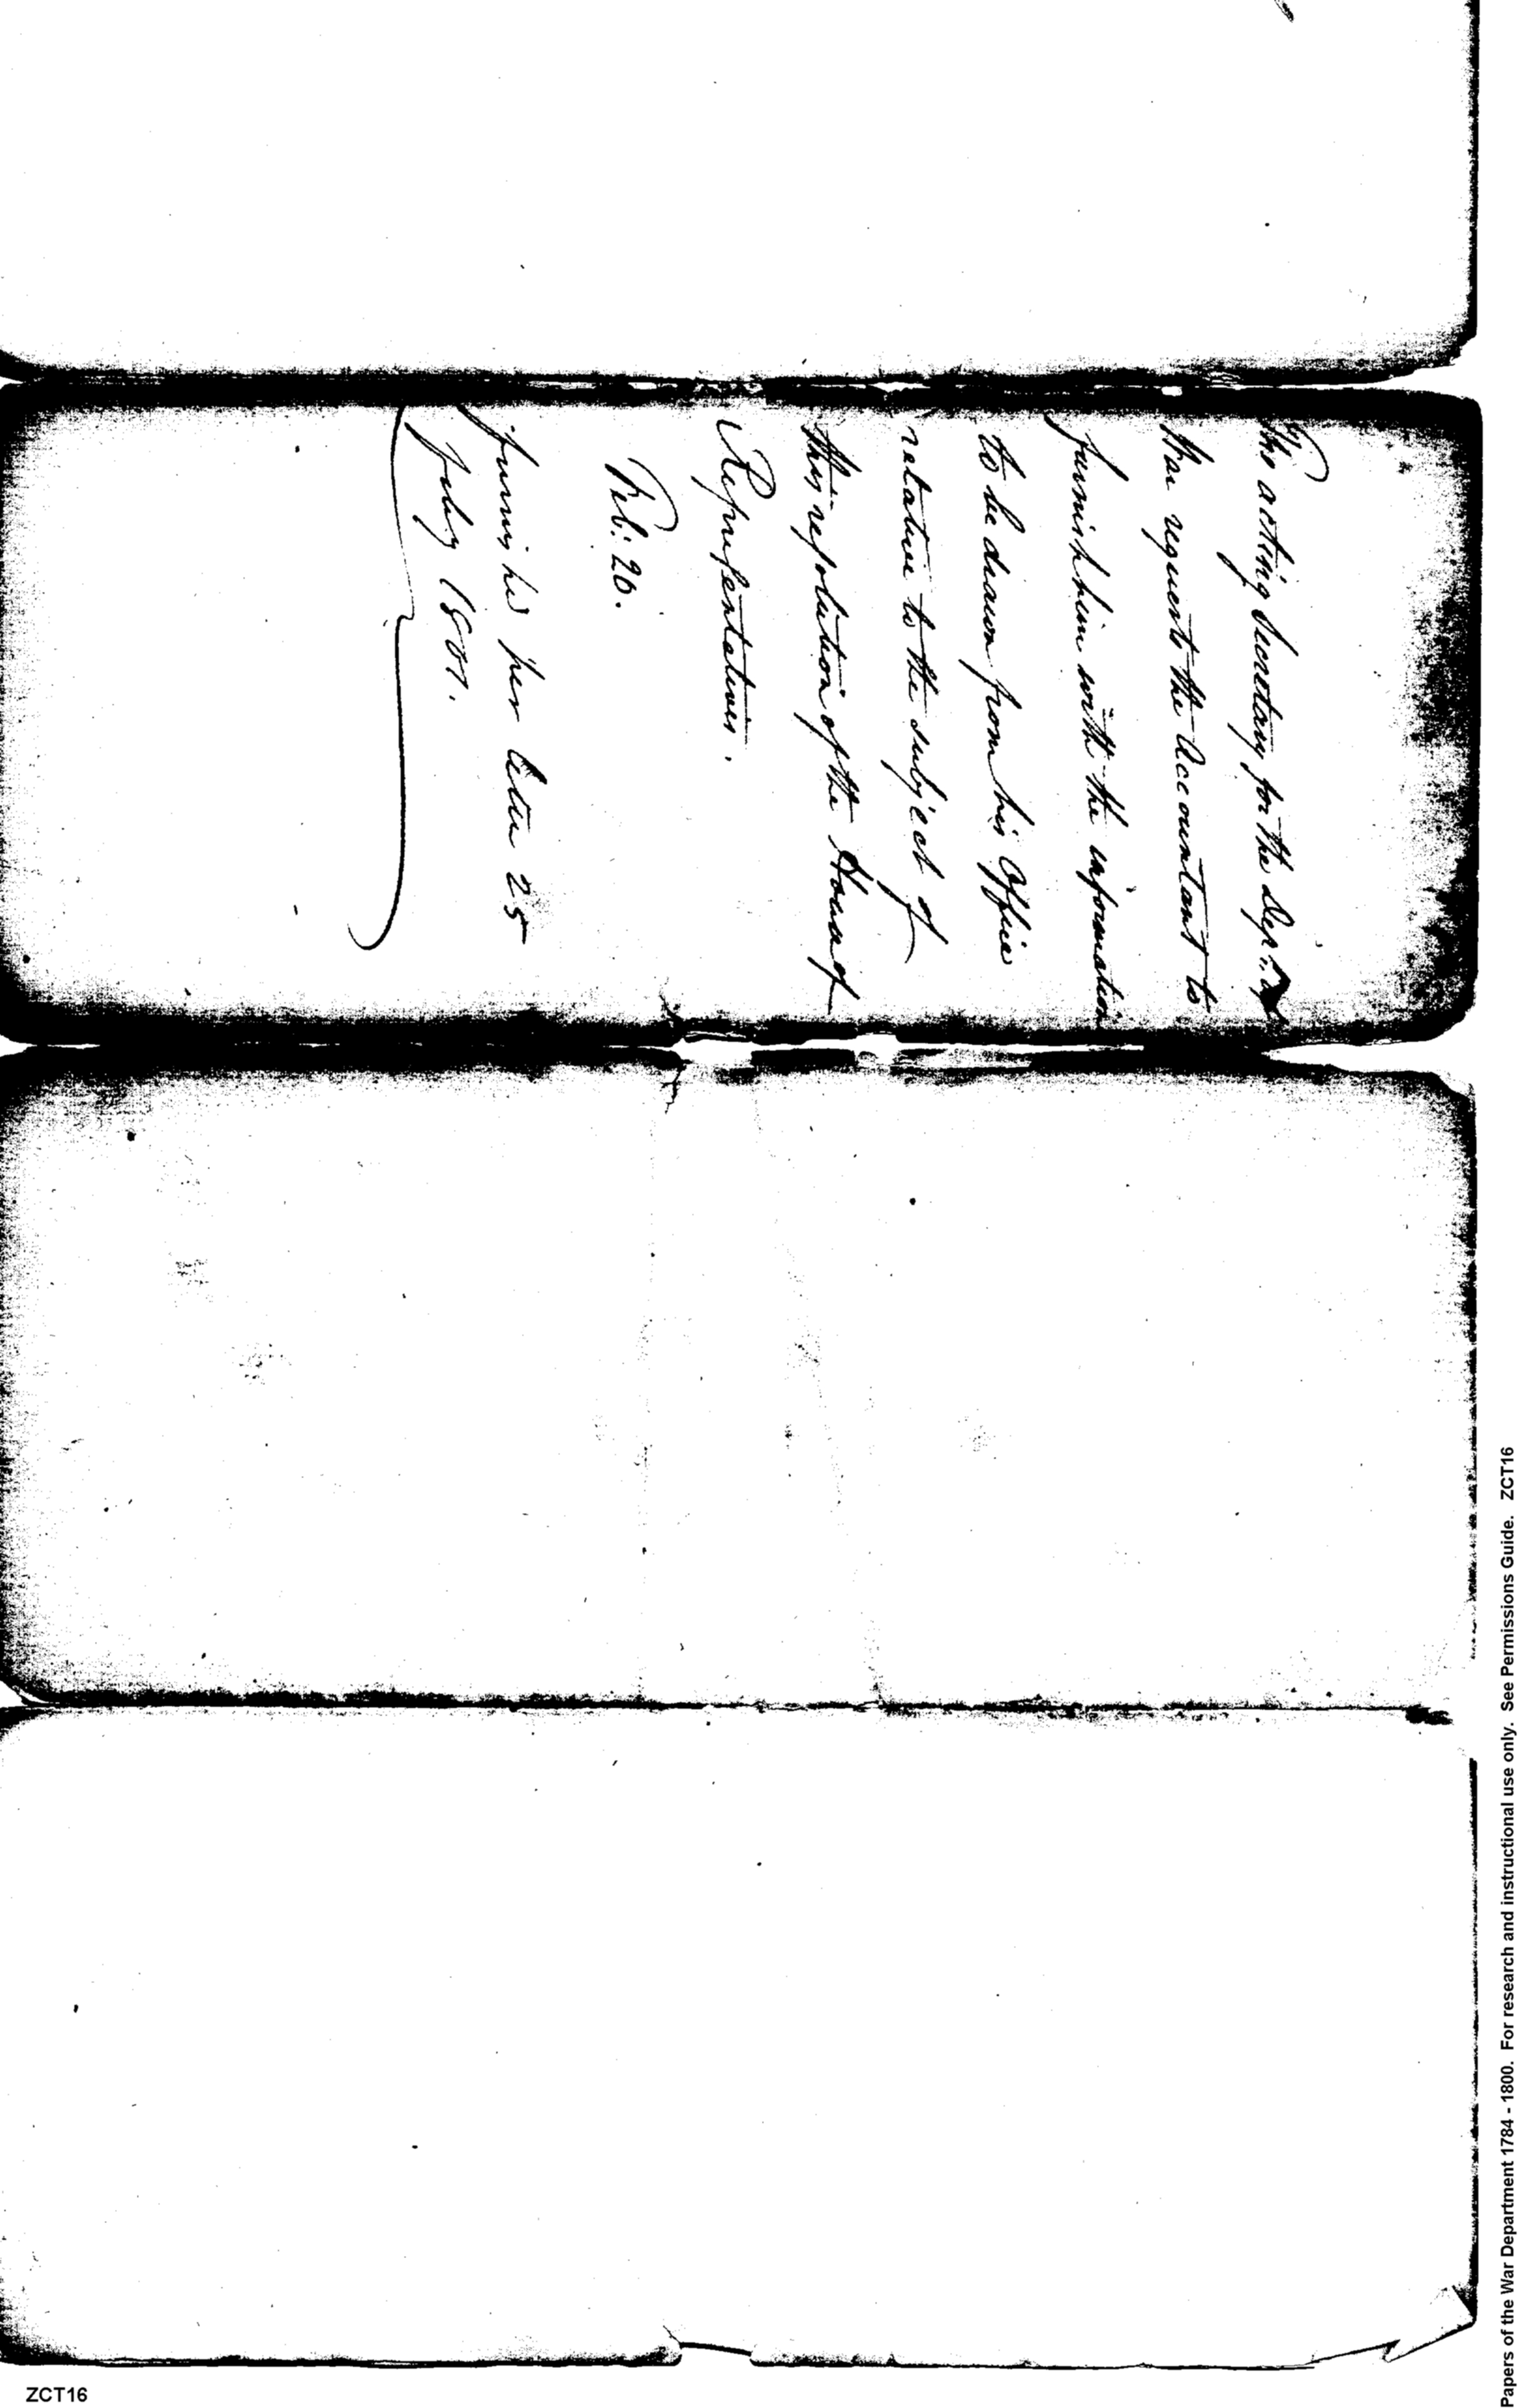 The acting Secretary for the Dept. of
War requests the Accountant to
furnish him with the information
to be drawn from his Office
relative to the subject of
this resolution of the House of
Representatives.
Feb: 20.
furnished per letter 25
July 1801.
Papers of the War Department 1784 - 1800. For research and instructional use only. See Permissions Guide. ZCT16
ZCT16